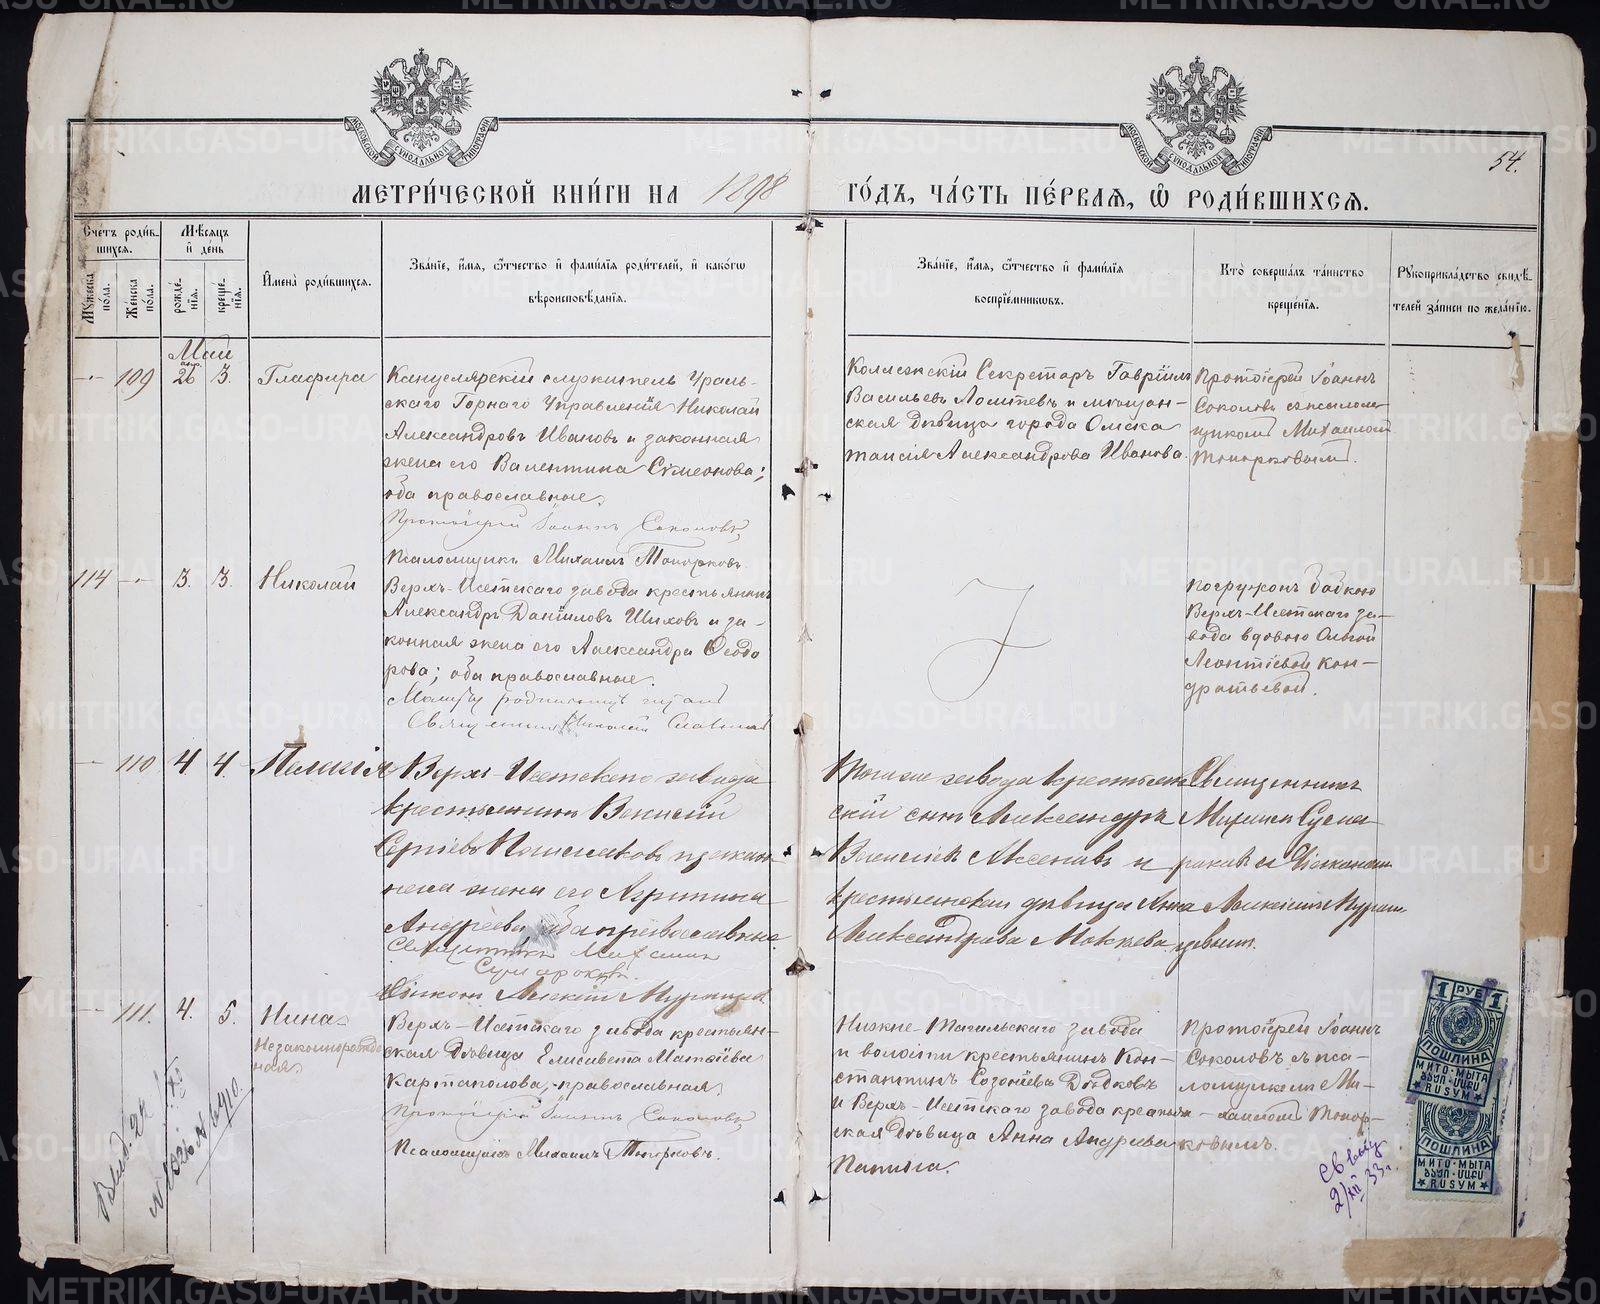 МЕТРИ́ЧЕСКОЙ КНИ́ГИ НА 1898 ГО́ДЪ, ЧА́СТЬ ПЕ́РВАЯ, Ѡ РОДИ́ВШИХСЯ.
54.
Счетъ роди́в-
шихся.
Мѣсяцъ
и де́нь
Мужеска
по́ла.
Же́нска
по́ла.
рожде́-
нїя.
креще́-
нїя.
Имена̀ роди́вшихся.
Зва́нїе, и́мя, ѻ́тчество и фами́лїя роди́телей, и како́гѡ
вѣроисповѣ́данїя.
Зва́нїе, и́мя, ѻ́тчество и фами́лїя
воспрїе́мникѡвъ.
Кто̀ соверша́лъ та́инство
креще́нїя.
Рукоприкла́дство свидѣ́-
телей за́писи по жела́нїю.
Май
109
26
3.
Глафира
Канцелярскій служитель Ураль-
скаго Горнаго Управленія Николай
Александровъ Ивановъ и законная
жена его Валентина Сѵмеонова;
оба православные.
Протоіерей Іоаннъ Соколовъ
Псаломщикъ Михаилъ Топорковъ.
Коллежскій Секретарь Гавріилъ
Васильевъ и мѣщан-
ская дѣвица города Омска
Таисія Александрова Иванова.
Протоіерей Іоаннъ
Соколовъ съ псалом-
щикомъ Михаиломъ
Топорковымъ.
114
3.
3.
Николай
Верхъ-Исетскаго завода крестьянинъ
Александръ Даніиловъ Шиховъ и за-
конная жена его Александра Ѳеодо
рова; оба православные.
Молитву родильницѣ читалъ
Священникъ Николай
погружен бабкою
Верхъ-Исетскаго за-
вода вдовою Ольгой
Леонтіевой Кон-
дратьевой.
110
4
4.
Пелагія
Верхъ-Исетскаго завода
крестьянинъ Василій
Сергіевъ и закон-
ная жена его Агриппина
Андреева оба православные
Священникъ Михаилъ
Сумароковъ
Діаконъ Алексій
Того же завода крестьян
скій сынъ Александръ
Васильевъ Аксеновъ и
крестьянская дѣвица Анна
Александрова Мокѣева
Священникъ
Михаилъ Сума
роковъ съ Діакономъ
Алексіемъ
111.
4.
5.
Нина
Незаконнорожден
ная
Верхъ-Исетскаго завода крестьян-
ская дѣвица Елисавета Матѳіева
Картаполова, православная.
Протоіерей Іоаннъ Соколовъ
Псаломщикъ Михаилъ Топорковъ.
Нижне-Тагильскаго завода
и волости крестьянинъ Кон-
стантинъ Созонтіевъ Дѣдковъ
и Верхъ-Исетскаго завода крестьян-
ская дѣвица Анна Андреева
Папина.
Протоіерей Іоаннъ
Соколовъ съ пса-
ломщикомъ Ми-
хаиломъ Топор-
ковымъ.
1 РУБ 1
ПОШЛИНА
МИТО·МЫТА
RUSYM
ПОШЛИНА
МИТО·МЫТА
RUSYM
2/XII 33 г.